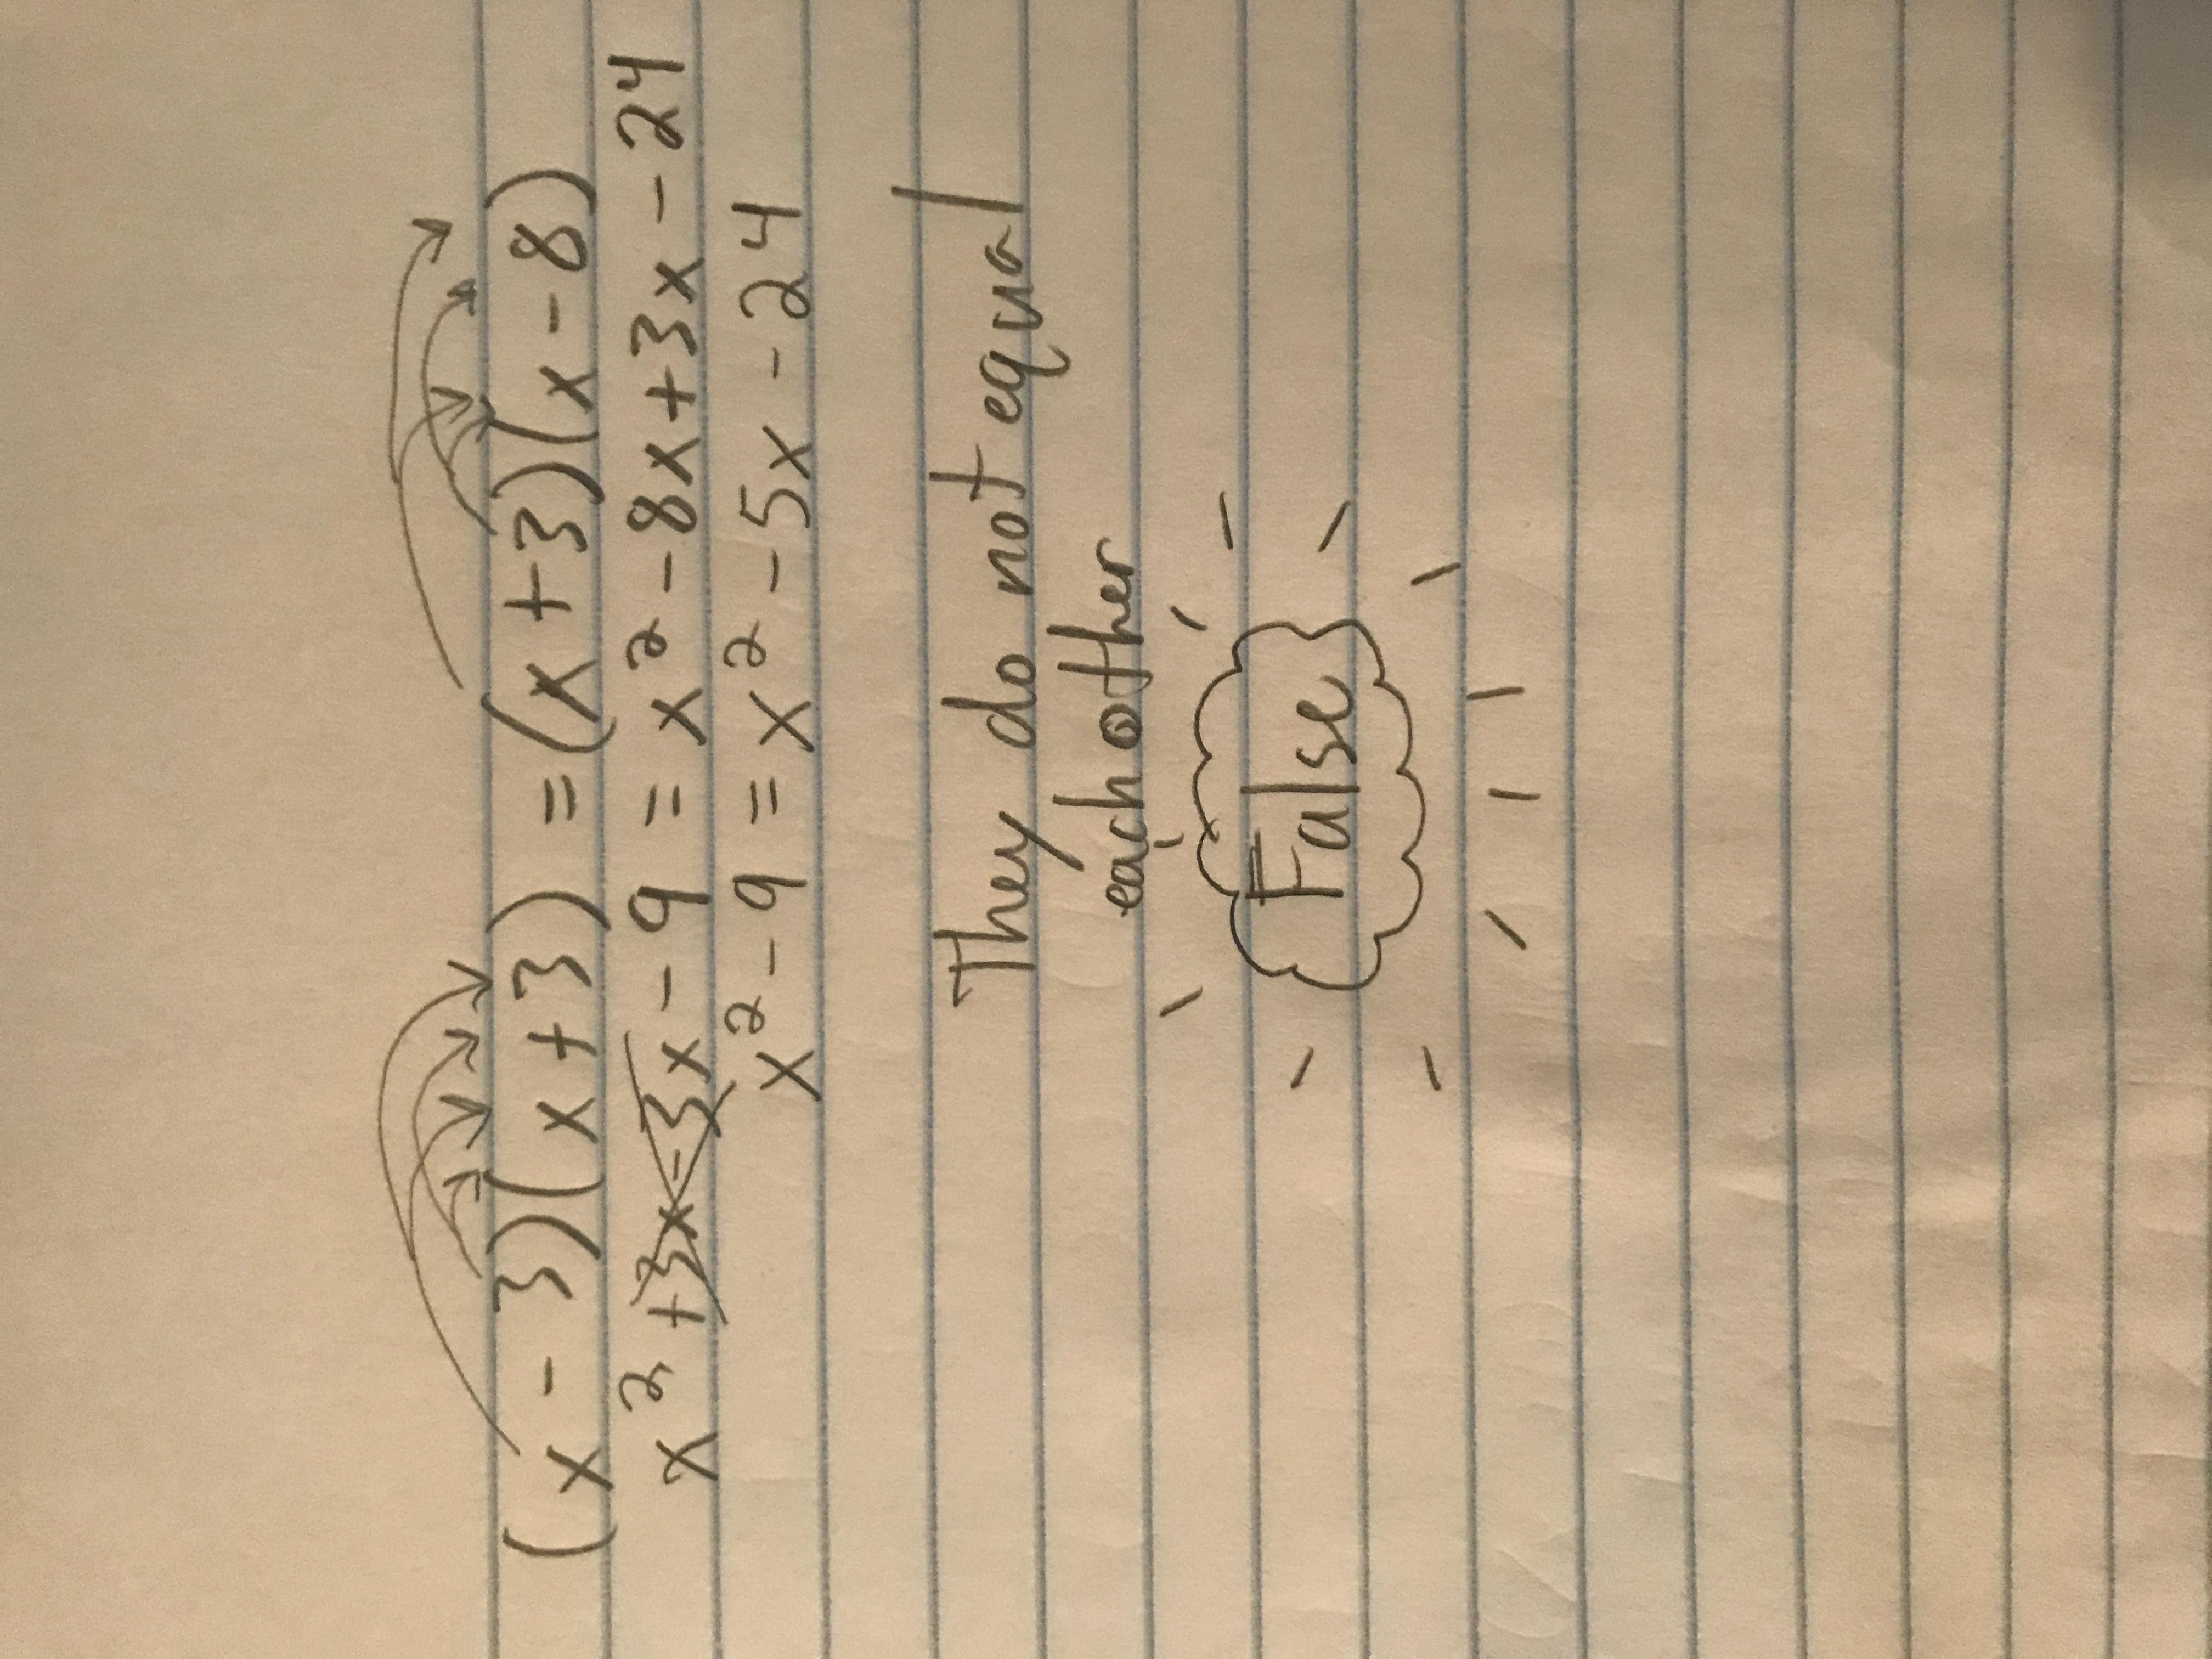 (x - 3)(x + 3) = (x + 3)(x - 8)
x² + 3x - 3x - 9 = x² - 8x + 3x - 24
x² - 9 = x² - 5x - 24
They do not equal
each other
False